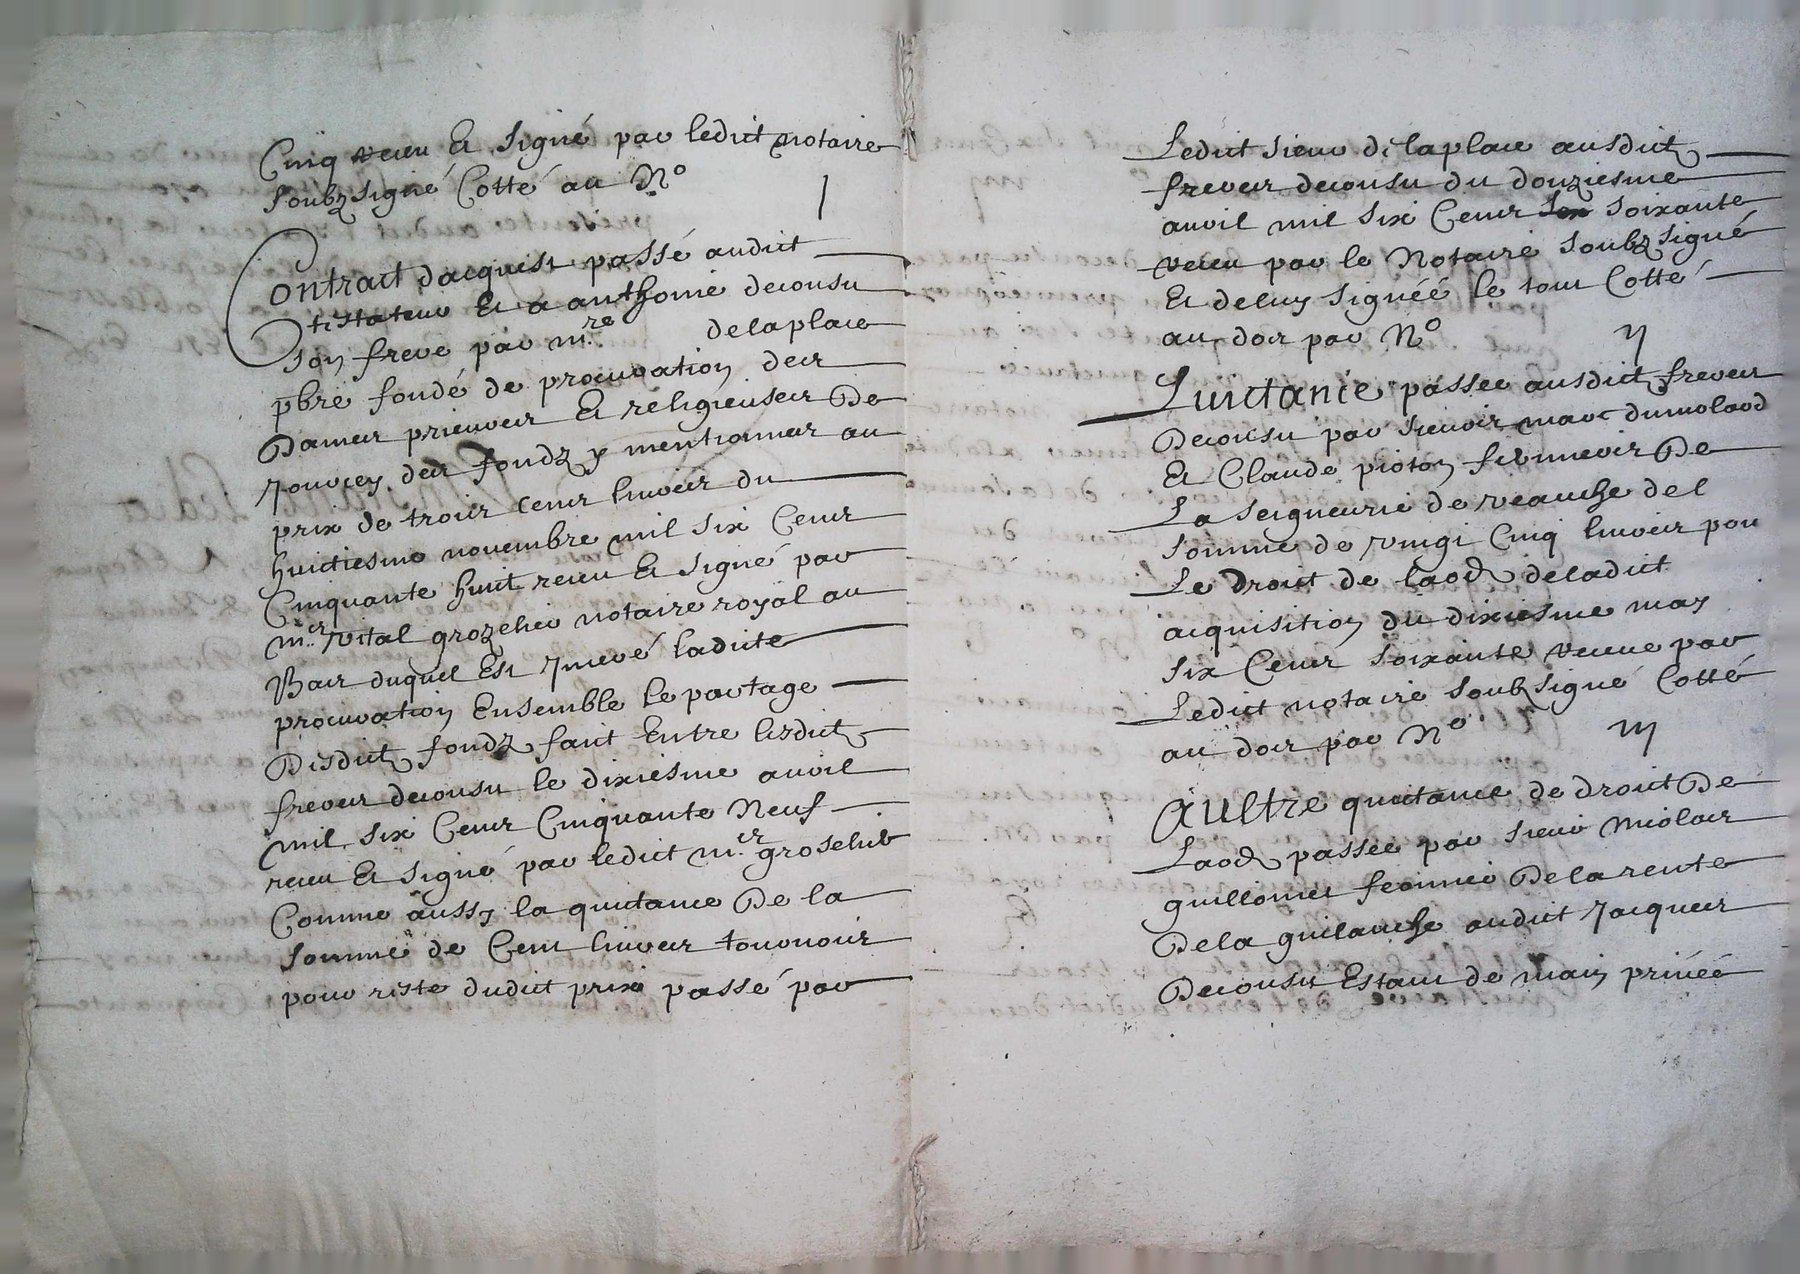 Cinq receu Et signé par ledict notaire
soubzsigné Cotté au N° I
Contract dacquest passé audict
testateur Et a anthoine decousu
son frere par m.re delaplace
pbre fondé de procuration des
Dames prieures Et religieuses De
Jourcey des fondz y mentionnes au
prix de trois Cens livres du
huictiesme novembre mil six Cens
Cinquante huit receu Et signé par
m.er vital grozelier notaire royal au
Bas duquel Est Inseré ladicte
procuration Ensemble le partage
Desdictz fondz faict Entre lesdictz
freres decousu le dixiesme avril
mil six Cens Cinquante Neuf
receu Et signé par ledict m.er groselier
Comme aussy la quictance De la
somme de Cent livres tournois
pour reste dudict prix passé par
Ledict sieur de laplace ausdictz
freres decousu du douziesme
avril mil six Cens soixante
receu par le Notaire soubzsigné
Et deluy signéé le tout Cotté
au dos par N° II
Quictance passee ausdictz freres
Decousu par sieurs marc dumolard
Et Claude pioton fermiers De
La seigneurie de veauche del
somme de vingt Cinq livres pour
Le Droict de laodz deladicte
acquisition du dixiesme may
six Cens soixante receue par
Ledict notaire soubzsigné Cotté
au dos par N° III
Aultre quictance de droict De
Laodz passée par sieur Nicolas
guillomet fermier De la rente
De la guilanche audict Jacques
Decousu Estant de main privéé